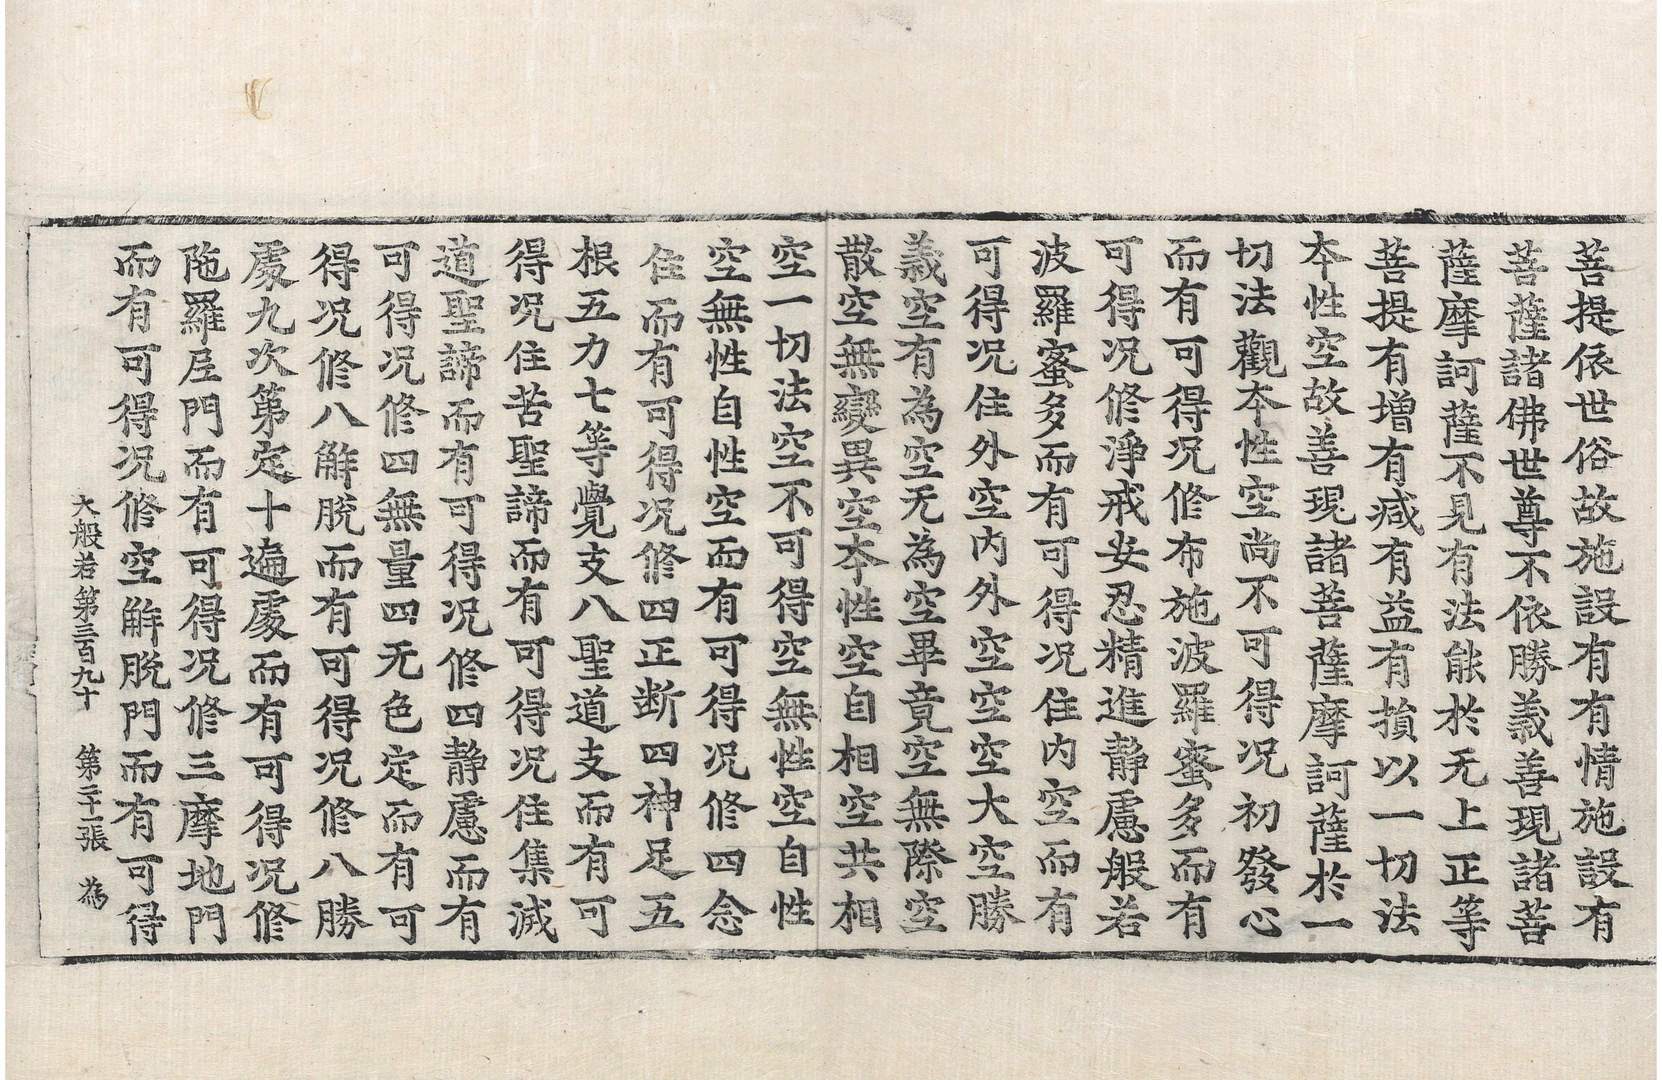 菩提依世俗故施設有有情施設有
菩薩諸佛世尊不依勝義善現諸菩
薩摩訶薩不見有法能於无上正等
菩提有增有减有益有損以一切法
本性空故善現諸菩薩摩訶薩於一
切法觀本性空尚不可得况初發心
而有可得况修布施波羅蜜多而有
可得况修淨戒安忍精進靜慮般若
波羅蜜多而有可得况住内空而有
可得况住外空内外空空空大空勝
義空有為空无為空畢竟空無際空
散空無變異空本性空自相空共相
空一切法空不可得空無性空自性
空無性自性空而有可得况修四念
住而有可得况修四正斷四神足五
根五力七等覺支八聖道支而有可
得况住苦聖諦而有可得况住集滅
道聖諦而有可得况修四靜慮而有
可得况修四無量四无色定而有可
得况修八解脫而有可得况修八勝
處九次第定十遍處而有可得况修
陁羅尼門而有可得况修三摩地門
而有可得况修空解脫門而有可得
大般若第三百九十　第二十一張　為